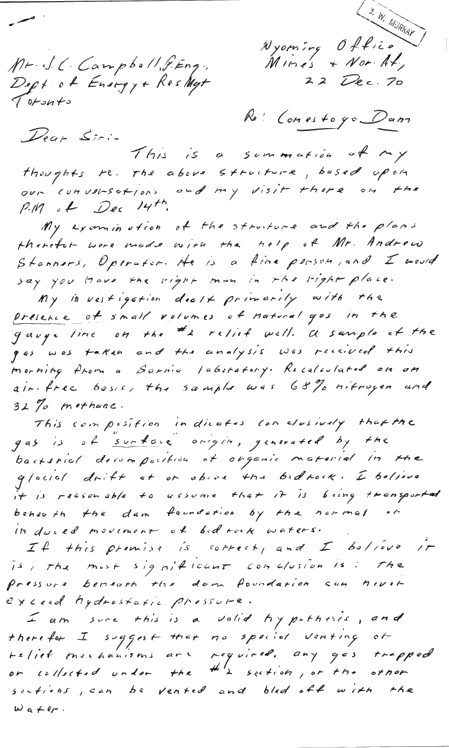 J. W. MURRAY
Wyoming Office
Mr. J. C. Campbell, P. Eng.,
Mines & Nor. Af,
Dept of Energy & Res Mgt
22 Dec. 70
Toronto
Re: Conestogo Dam
Dear Sir:-
This is a summation of my
thoughts re. the above structure, based upon
our conversations and my visit there on the
P.M of Dec 14th.
My examination of the structure and the plans
therefor were made with the help of Mr. Andrew
Stanners, Operator. He is a fine person, and I would
say you have the right man in the right place.
My investigation dealt primarily with the
presence of small volumes of natural gas in the
gauge line on the #2 relief well. A sample of the
gas was taken and the analysis was received this
morning from a Sarnia laboratory. Recalculated on an
air-free basis, the sample was 68% nitrogen and
32% methane.
This composition indicates conclusively that the
gas is of "surface" origin, generated by the
bacterial decomposition of organic material in the
glacial drift at or above the bedrock. I believe
it is reasonable to assume that it is being transported
beneath the dam foundation by the normal or
induced movement of bedrock waters.
If this premise is correct, and I believe it
is, the most significant conclusion is: The
pressure beneath the dam foundation can never
exceed hydrostatic pressure.
I am sure this is a valid hypothesis, and
therefor I suggest that no special venting or
relief mechanisms are required. Any gas trapped
or collected under the #2 section, or the other
sections, can be vented and bled off with the
water.